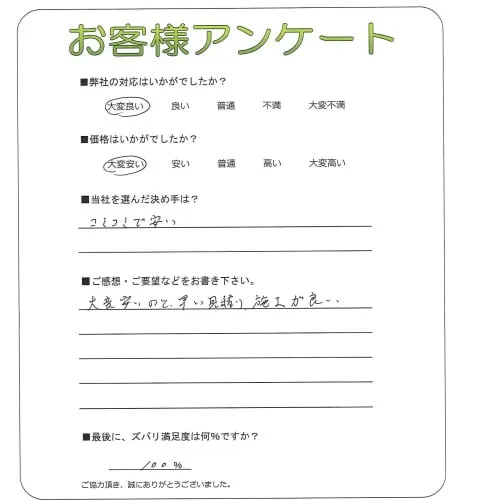 お客様アンケート
■弊社の対応はいかがでしたか？
大変良い 良い 普通 不満 大変不満
■価格はいかがでしたか？
大変安い 安い 普通 高い 大変高い
■当社を選んだ決め手は？
コミコミで安い
■ご感想・ご要望などをお書き下さい。
大変安いのと、早い見積り、施工が良い、
■最後に、ズバリ満足度は何％ですか？
100％
ご協力頂き、誠にありがとうございました。